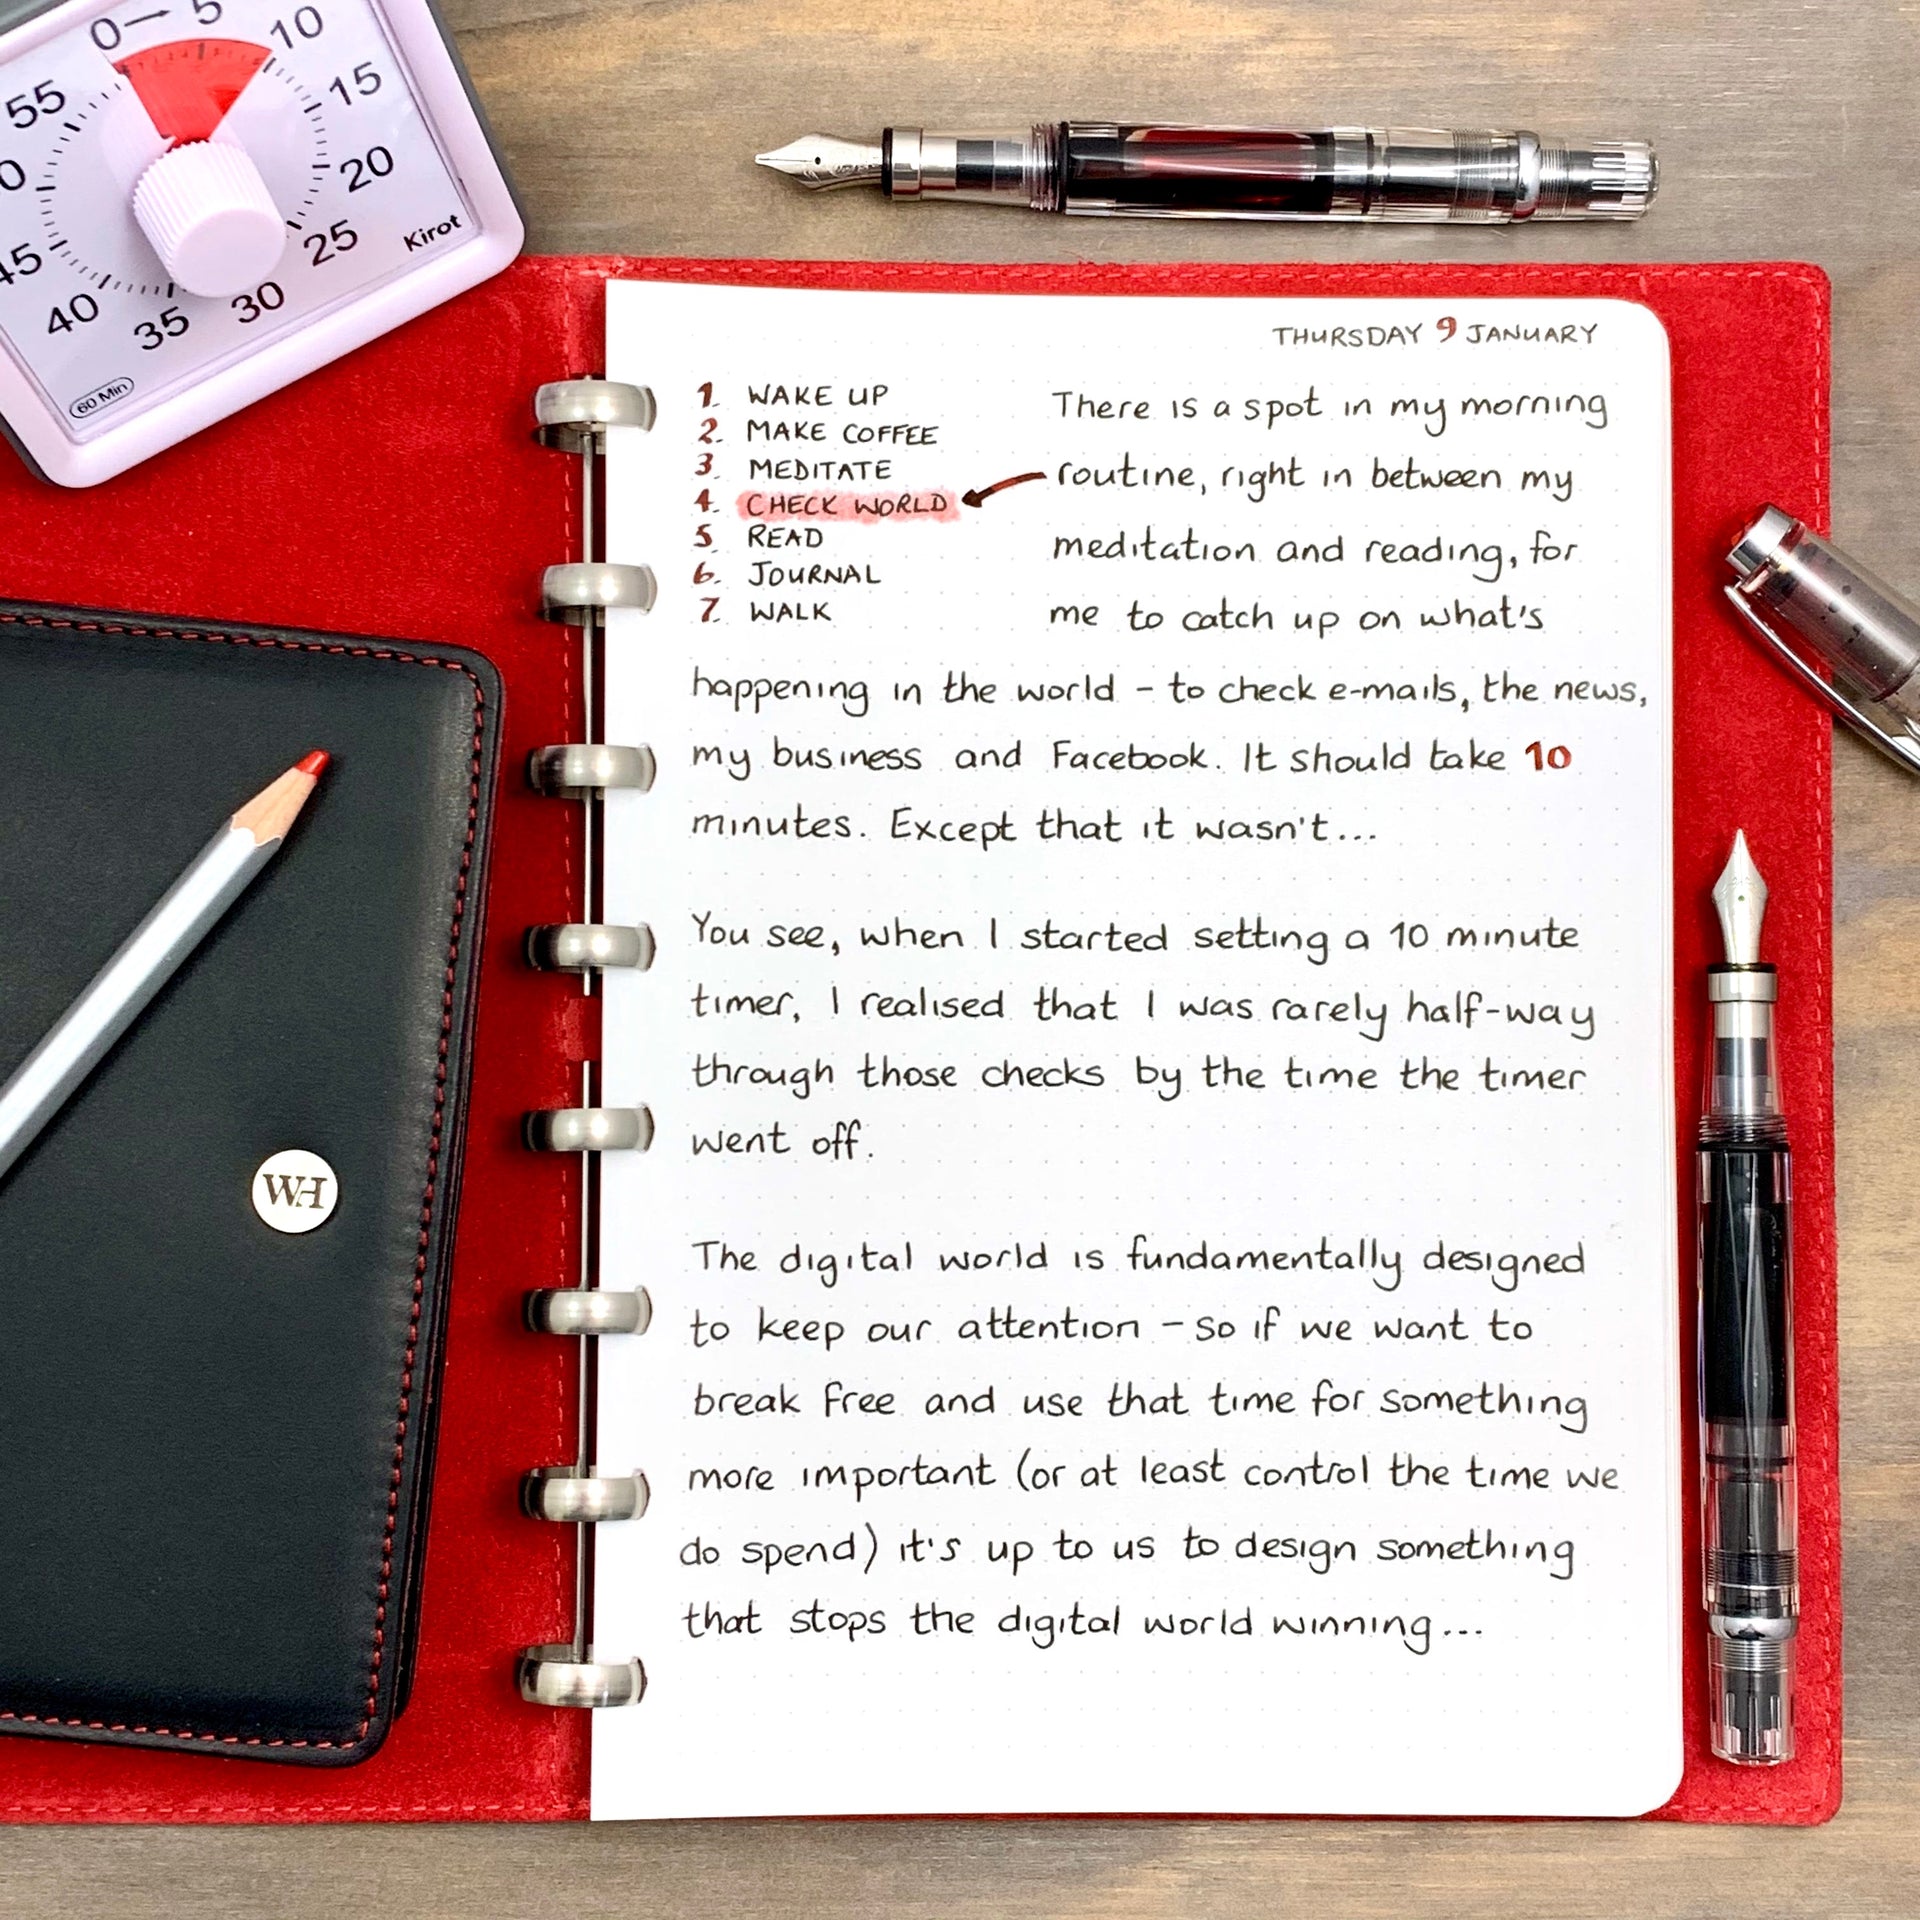 0 → 5
10
15
20
25
30
35
40
45
0
55
Kirot
60 Min
THURSDAY 9 JANUARY
1. WAKE UP
2. MAKE COFFEE
3. MEDITATE
4. CHECK WORLD
5. READ
6. JOURNAL
7. WALK
There is a spot in my morning
routine, right in between my
meditation and reading, for
me to catch up on what's
happening in the world - to check e-mails, the news,
my business and Facebook. It should take 10
minutes. Except that it wasn't...
You see, when I started setting a 10 minute
timer, I realised that I was rarely half-way
through those checks by the time the timer
went off.
The digital world is fundamentally designed
to keep our attention - so if we want to
break free and use that time for something
more important (or at least control the time we
do spend) it's up to us to design something
that stops the digital world winning...
WH